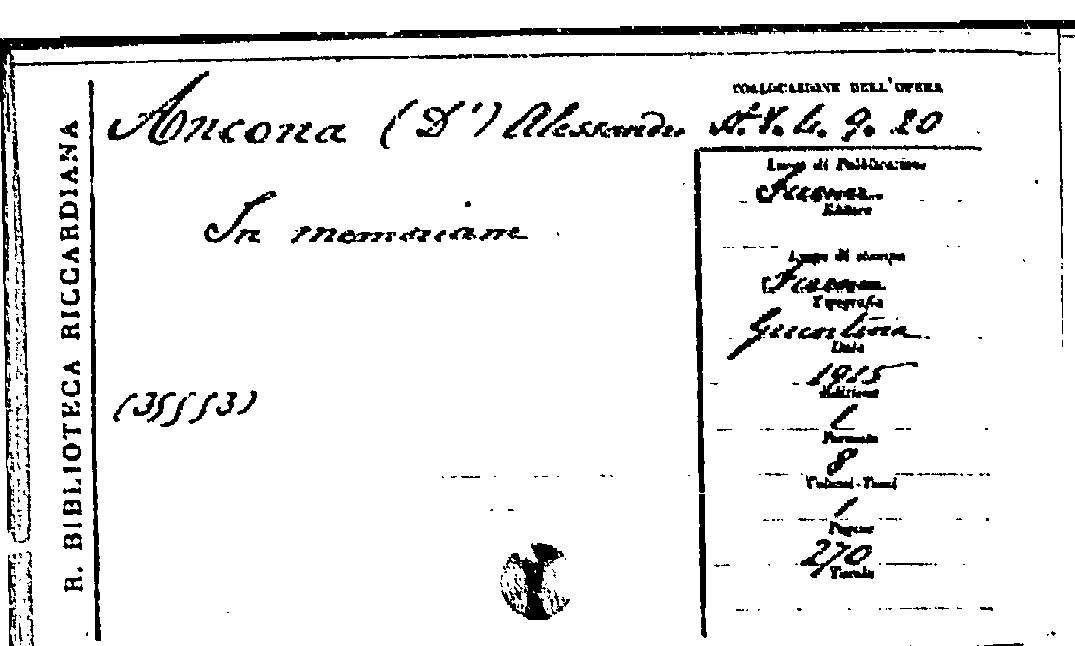 R. BIBLIOTECA RICCARDIANA
Ancona (D') Alessandro
In memoriam
(35553)
COLLOCAZIONE DELL'OPERA
4. 9. 20
Luogo di Pubblicazione
Firenze
Editore
Luogo di stampa
Firenze
Tipografia
Giuntina
Data
1915
Edizione
1
Formato
8
Volumi-Tomi
1
Pagine
270
Tavole